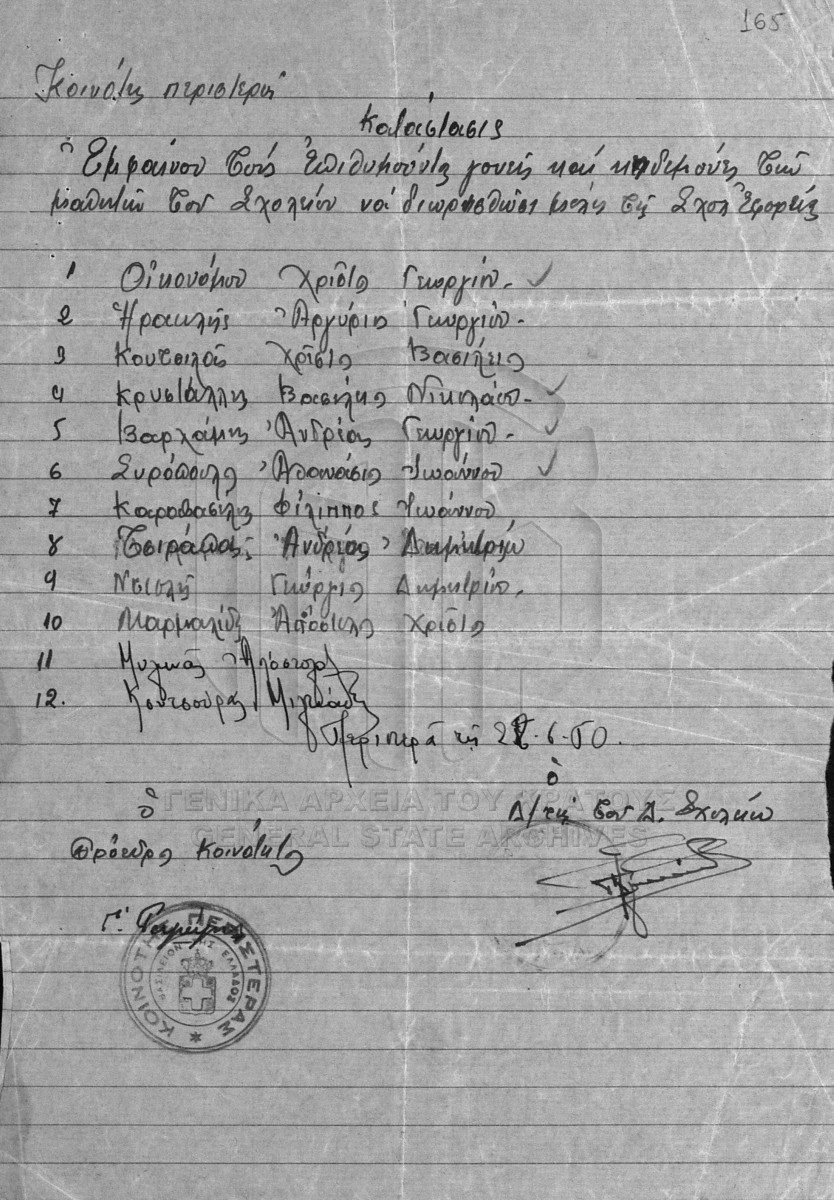 165
Κοινότης Περιστερής
Κατάστασις
Ἐμφαίνουσα τούς ἐπιθυμούντας γονείς καί κηδεμόνες τῶν
μαθητῶν τοῦ Σχολείου νά διωρισθῶσι μέλη τῆς Σχολ Ἐφορείας
1 Οἰκονόμου Χρῖστος Γεωργίου.
2 Ἡρακλῆς Ἀργύριος Γεωργίου.
3 Κουτσιλᾶς Χρῖστος Βασίλειος
4 Κρυστάλλης Βασίλειος Νικολάου.
5 Βαρχάμης Ἀνδρέας Γεωργίου.
6 Συρόπουλος Ἀθανάσιος Ἰωάννου
7 Καραβασίλης Φίλιππος Ἰωάννου
8 Ἀνδρέας Δημητρίου
9 Γεώργιος Δημητρίου.
10 Μαρμαλίδης Ἀπόστολος Χρῖστος
11 Μυλωνᾶς Ἀπόστολος
12. Κουτσούρας Μιλτιάδης
Περιστερά τῇ 6-50.
ὁ
ὁ
Δ/τής τοῦ Δ. Σχολείου
Πρόεδρος Κοινότητος
Γ.
ΓΕΝΙΚΑ ΑΡΧΕΙΑ ΤΟΥ ΚΡΑΤΟΥΣ
GENERAL STATE ARCHIVES
ΚΟΙΝΟΤΗΣ ΠΕΡΙΣΤΕΡΑΣ
ΒΑΣΙΛΕΙΟΝ ΤΗΣ ΕΛΛΑΔΟΣ